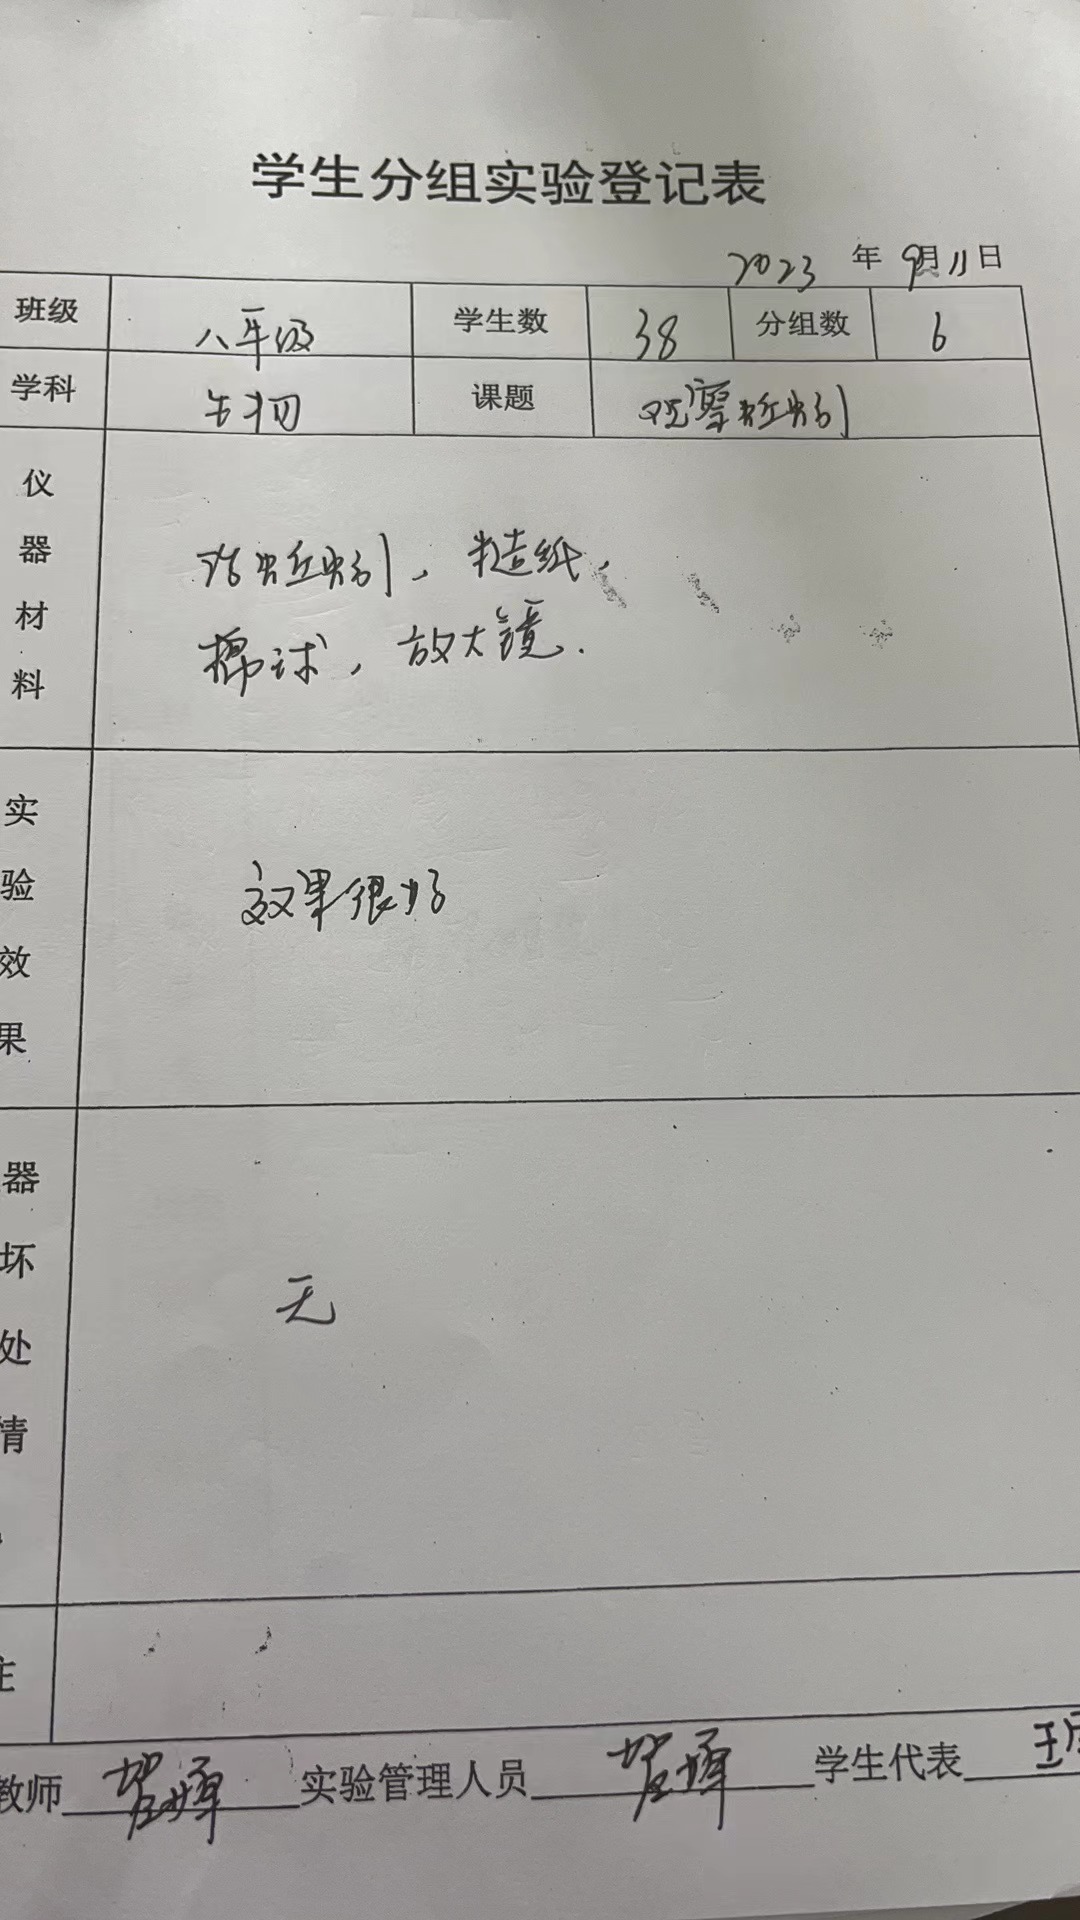 学生分组实验登记表
2023 年 9月11日
班级 八年级 学生数 38 分组数 6
学科 生物 课题 观察蚯蚓
仪器材料
活蚯蚓，糙纸，
棉球，放大镜.
实验效果
效果很好
器坏处情
无
教师 实验管理人员 学生代表 王